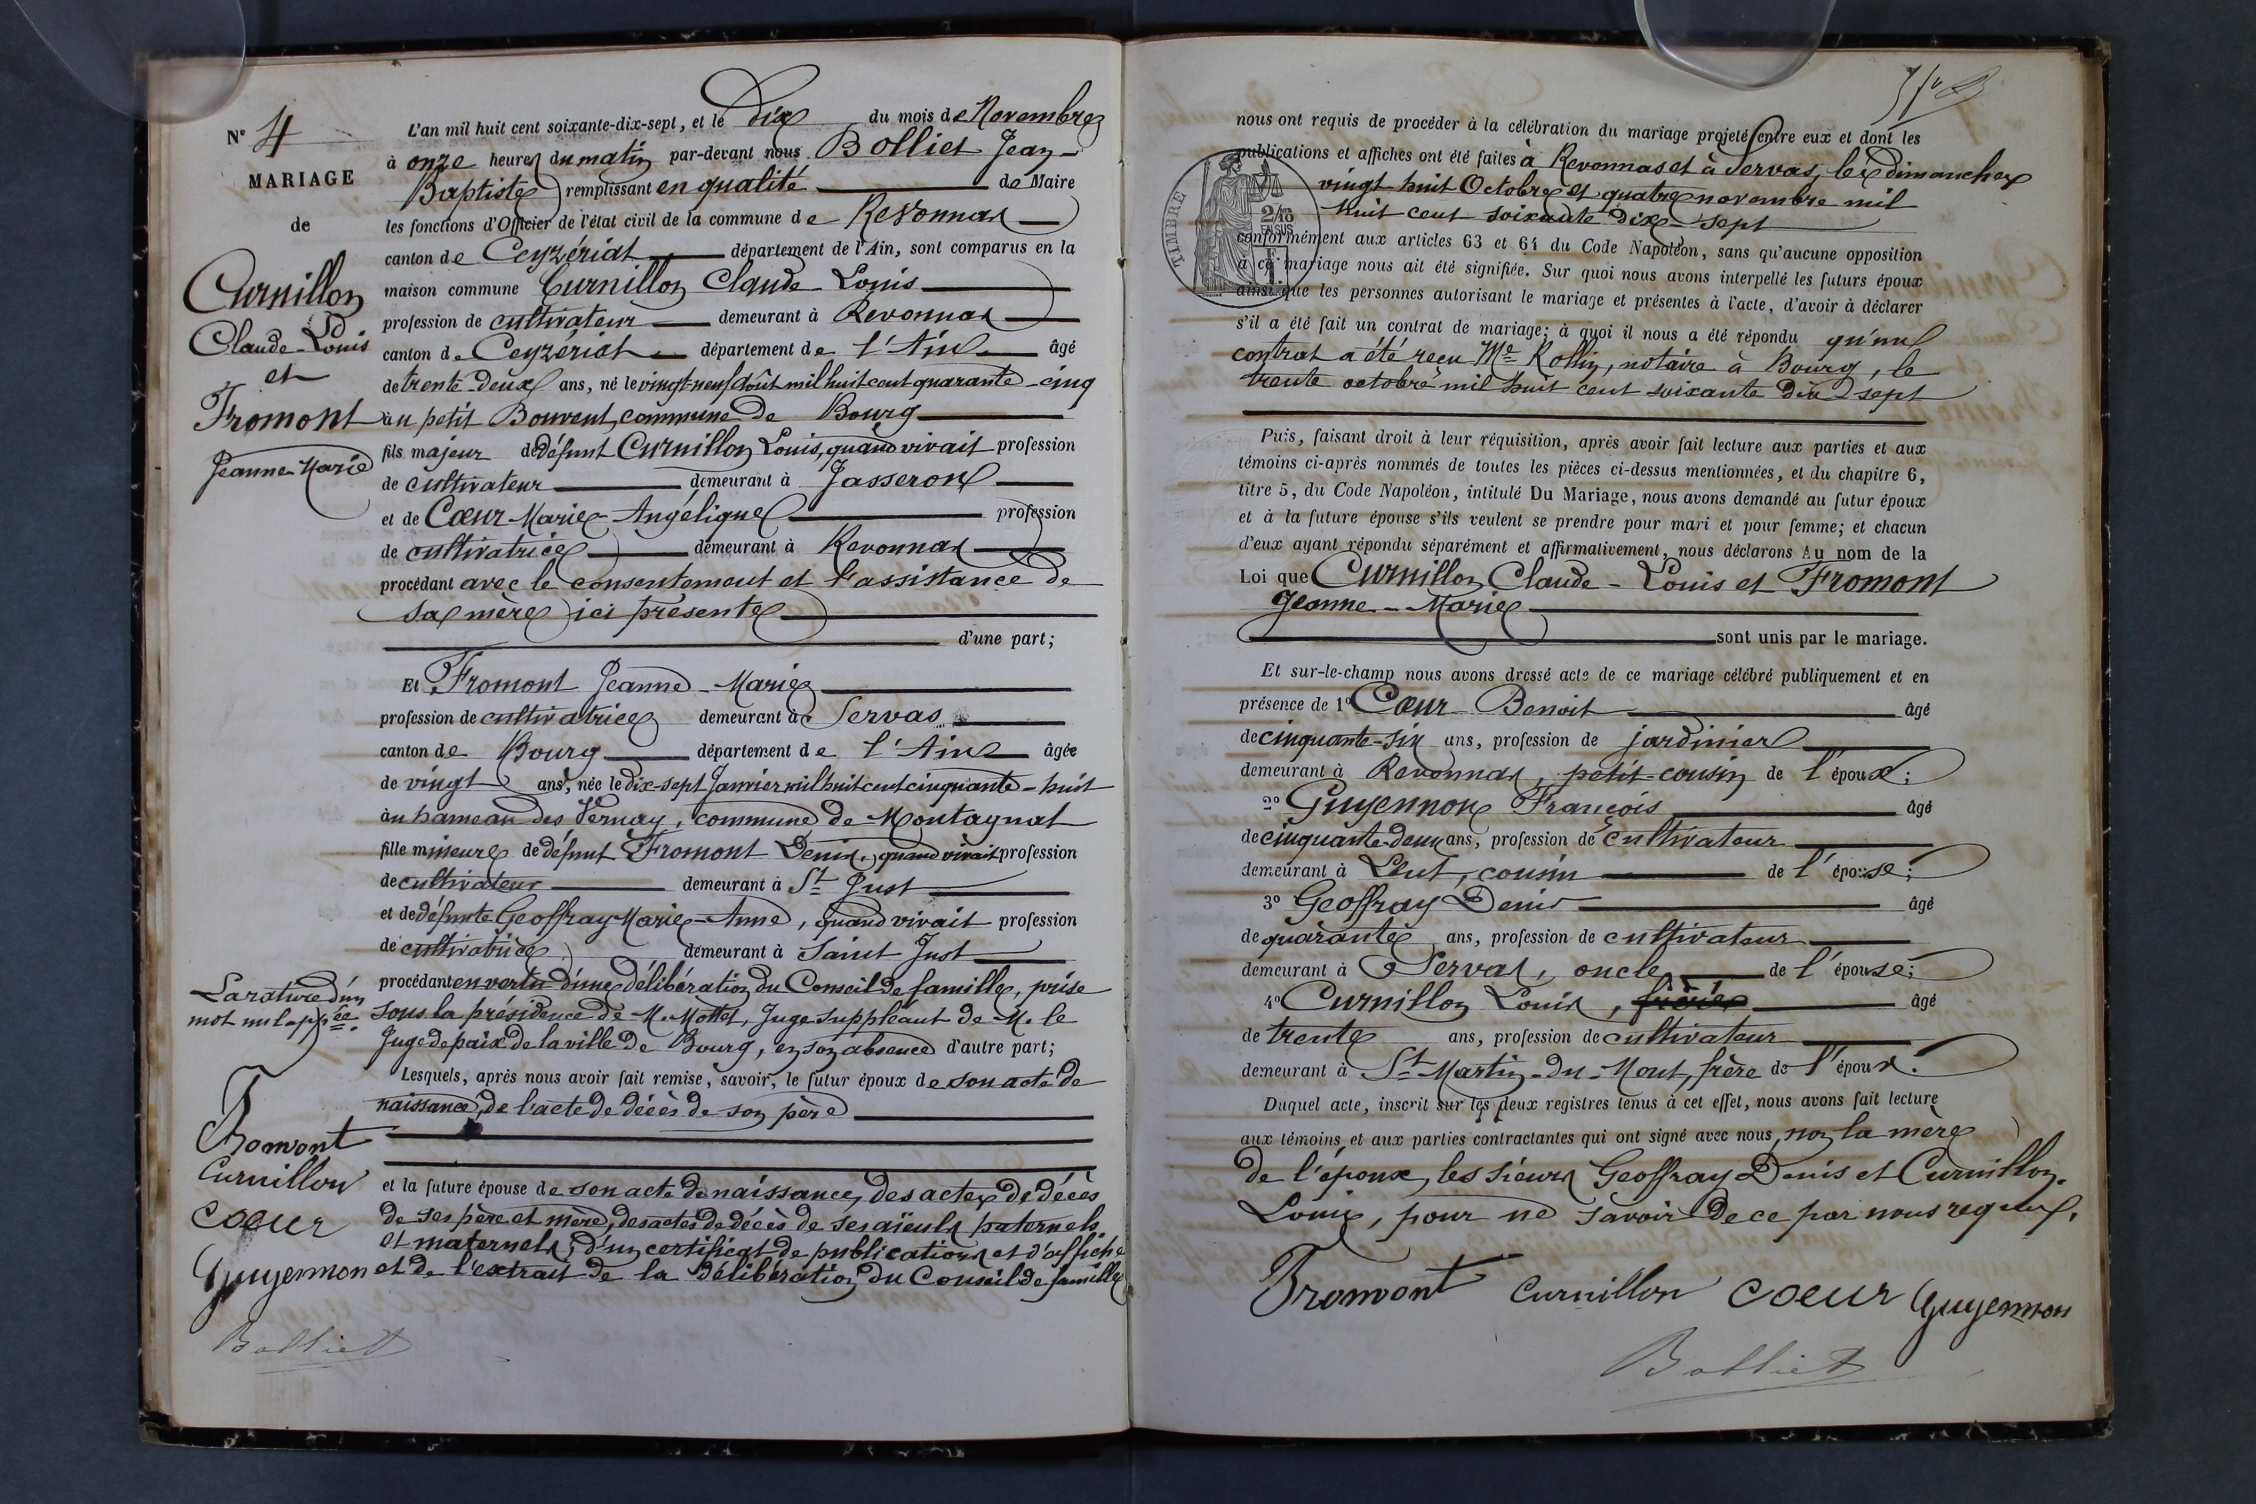 N° 4
MARIAGE
de
Curnillon
Claude-Louis
et
Fromont
Jeanne-Marie
L'an mil huit cent soixante-dix-sept, et le Dix du mois de Novembre
à onze heures du matin par-devant nous Bolliet Jean-
Baptiste remplissant en qualité de Maire
les fonctions d'Officier de l'état civil de la commune de Revonnas
canton de Ceyzériat département de l'Ain, sont comparus en la
maison commune Curnillon Claude Louis
profession de cultivateur demeurant à Revonnas
canton de Ceyzériat département de l'Ain âgé
de trente-deux ans, né le vingt-neuf août mil huit cent quarante-cinq
au petit Bouvent, commune de Bourg
fils majeur de défunt Curnillon Louis, quand vivait profession
de cultivateur demeurant à Jasseron
et de Cœur Marie-Angélique profession
de cultivatrice demeurant à Revonnas
procédant avec le consentement et l'assistance de
sa mère ici présente
d'une part;
Et Fromont Jeanne-Marie
profession de cultivatrice demeurant à Servas
canton de Bourg département de l'Ain âgée
de vingt ans, née le dix-sept Janvier mil huit cent cinquante-huit
au hameau des Vernay, commune de Montagnat
fille mineure de défunt Fromont Denis, quand vivait profession
de cultivateur demeurant à St Just
et de défunte Geoffray Marie-Anne, quand vivait profession
de cultivatrice demeurant à Saint Just
procédant en vertu d'une délibération du Conseil de famille, prise
sous la présidence de M. Mottet, Juge suppléant de M. le
Juge de paix de la ville de Bourg, en son absence d'autre part;
Lesquels, après nous avoir fait remise, savoir, le futur époux de son acte de
naissance, de l'acte de décès de son père
et la future épouse de son acte de naissance, des actes de décès
de ses père et mère, des actes de décès de ses aïeuls paternels
et maternels, d'un certificat de publications et d'affiche
et de l'extrait de la délibération du Conseil de famille
La rature d'un
mot nul appée.
Fromont
Curnillon
coeur
Guyennon
Bolliet
nous ont requis de procéder à la célébration du mariage projeté entre eux et dont les
publications et affiches ont été faites à Revonnas et à Servas, les dimanches
vingt-huit Octobre et quatre novembre mil
huit cent soixante dix-sept
TIMBRE
2/10
conformément aux articles 63 et 64 du Code Napoléon, sans qu'aucune opposition
à ce mariage nous ait été signifiée. Sur quoi nous avons interpellé les futurs époux
ainsi que les personnes autorisant le mariage et présentes à l'acte, d'avoir à déclarer
s'il a été fait un contrat de mariage; à quoi il nous a été répondu qu'un
contrat a été reçu Me Rollin, notaire à Bourg, le
trente octobre mil huit cent soixante dix-sept
Puis, faisant droit à leur réquisition, après avoir fait lecture aux parties et aux
témoins ci-après nommés de toutes les pièces ci-dessus mentionnées, et du chapitre 6,
titre 5, du Code Napoléon, intitulé Du Mariage, nous avons demandé au futur époux
et à la future épouse s'ils veulent se prendre pour mari et pour femme; et chacun
d'eux ayant répondu séparément et affirmativement, nous déclarons Au nom de la
Loi que Curnillon Claude-Louis et Fromont
Jeanne-Marie
sont unis par le mariage.
Et sur-le-champ nous avons dressé acte de ce mariage célébré publiquement et en
présence de 1° Cœur Benoit âgé
de cinquante-six ans, profession de jardinier
demeurant à Revonnas, petit-cousin de l'époux;
2° Guyennon François âgé
de cinquante-deux ans, profession de cultivateur
demeurant à Lent, cousin de l'épouse;
3° Geoffray Denis âgé
de quarante ans, profession de cultivateur
demeurant à Servas, oncle de l'épouse;
4° Curnillon Louis, frère âgé
de trente ans, profession de cultivateur
demeurant à St Martin-du-Mont, frère de l'époux.
Duquel acte, inscrit sur les deux registres tenus à cet effet, nous avons fait lecture
aux témoins et aux parties contractantes qui ont signé avec nous, non la mère
de l'époux, les sieurs Geoffray Denis et Curnillon
Louis, pour ne savoir de ce par nous requis.
Fromont Curnillon coeur Guyennon
Bolliet